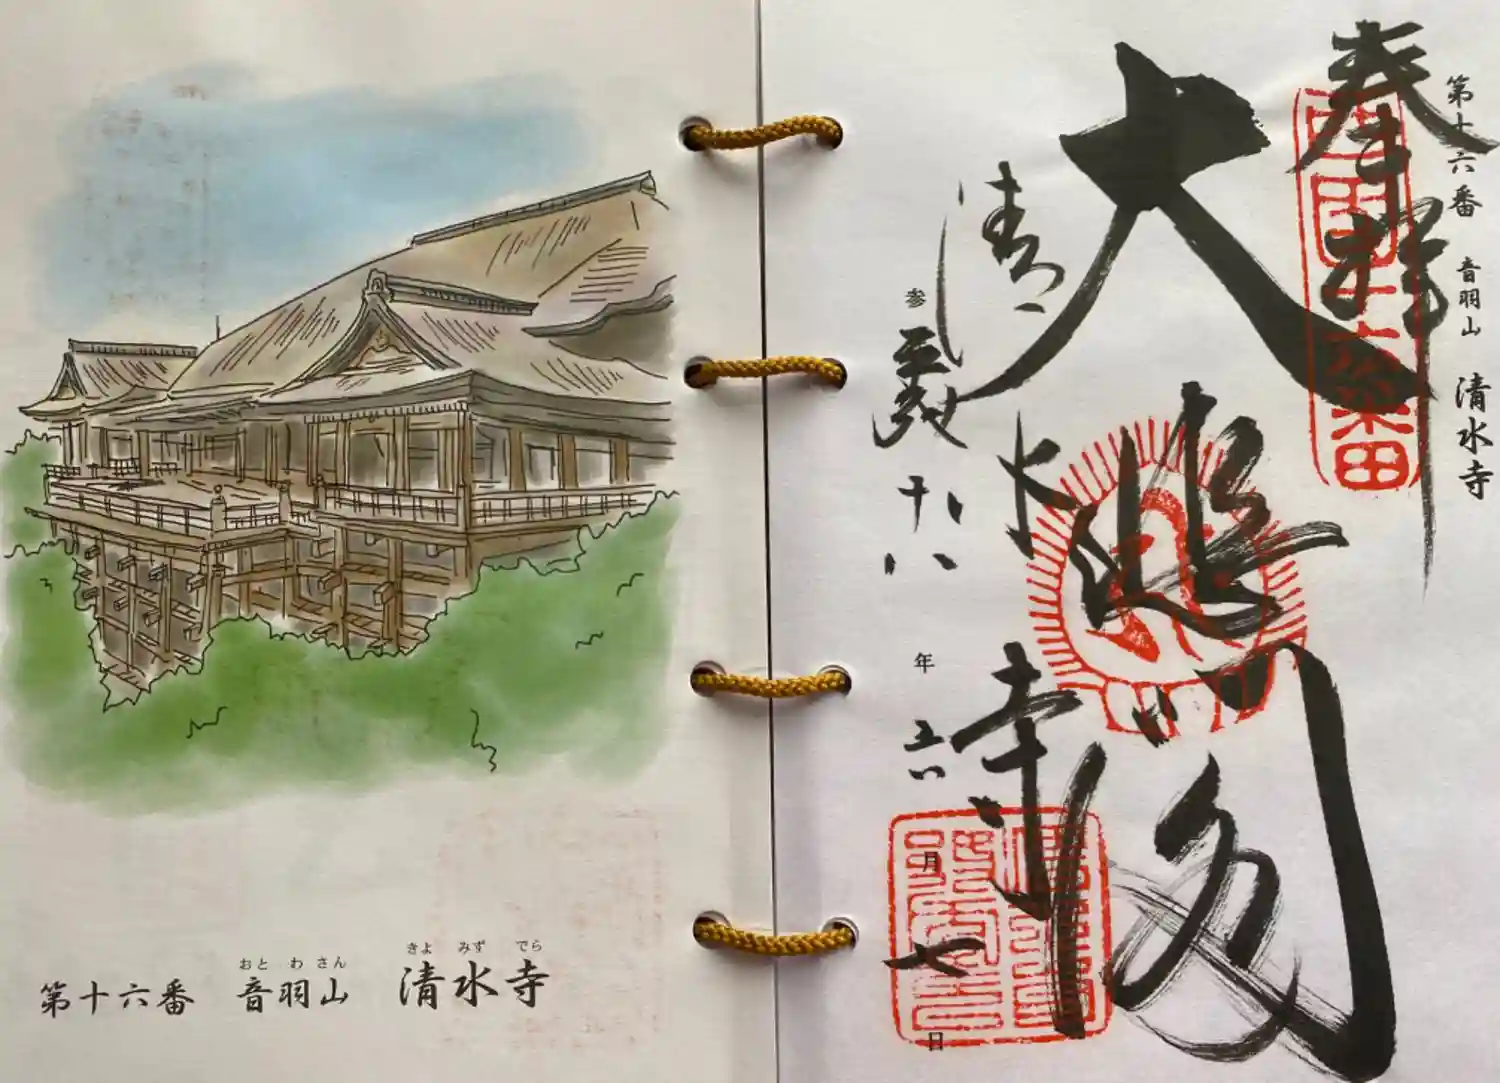 きよ みず でら
おと わ さん
第十六番 音羽山 清水寺
第十六番 音羽山 清水寺
奉拝
西国十六番
大悲閣
清水寺
参
年 五月七日